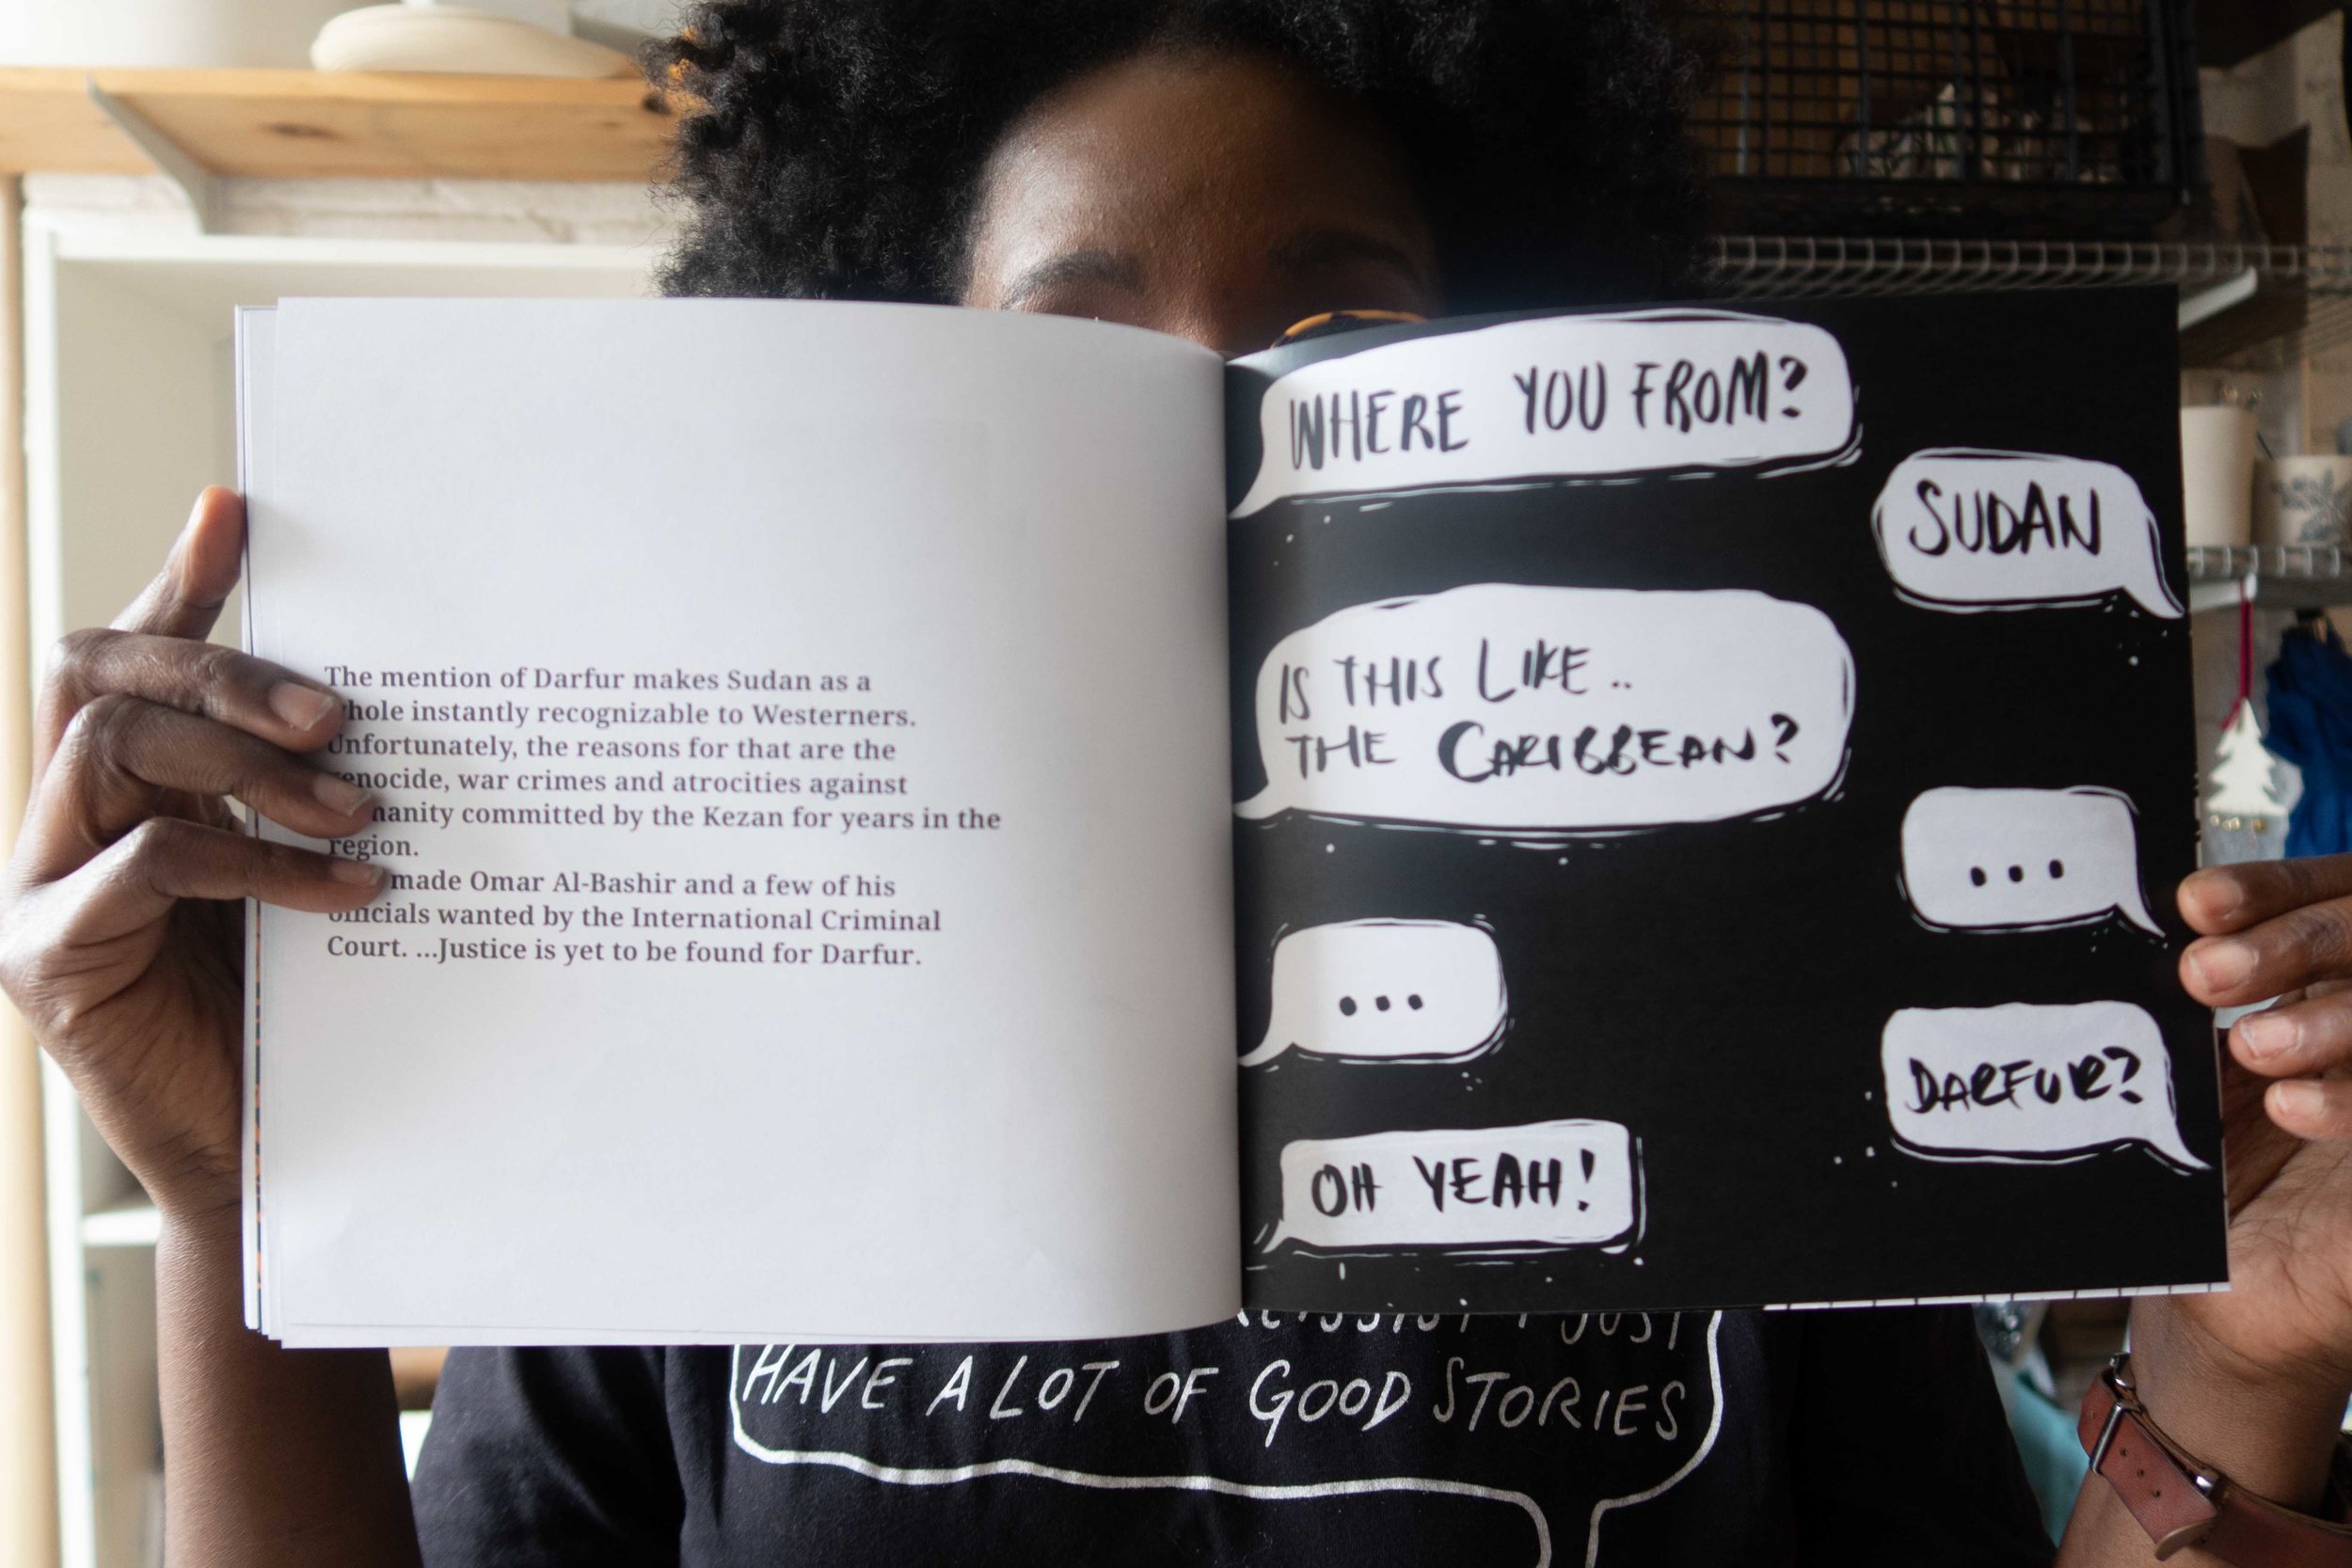 The mention of Darfur makes Sudan as a
whole instantly recognizable to Westerners.
Unfortunately, the reasons for that are the
genocide, war crimes and atrocities against
humanity committed by the Kezan for years in the
region.
made Omar Al-Bashir and a few of his
officials wanted by the International Criminal
Court. ...Justice is yet to be found for Darfur.
WHERE YOU FROM?
SUDAN
IS THIS LIKE..
THE CARIBBEAN?
...
...
DARFUR?
OH YEAH!
I JUST
HAVE A LOT OF GOOD STORIES